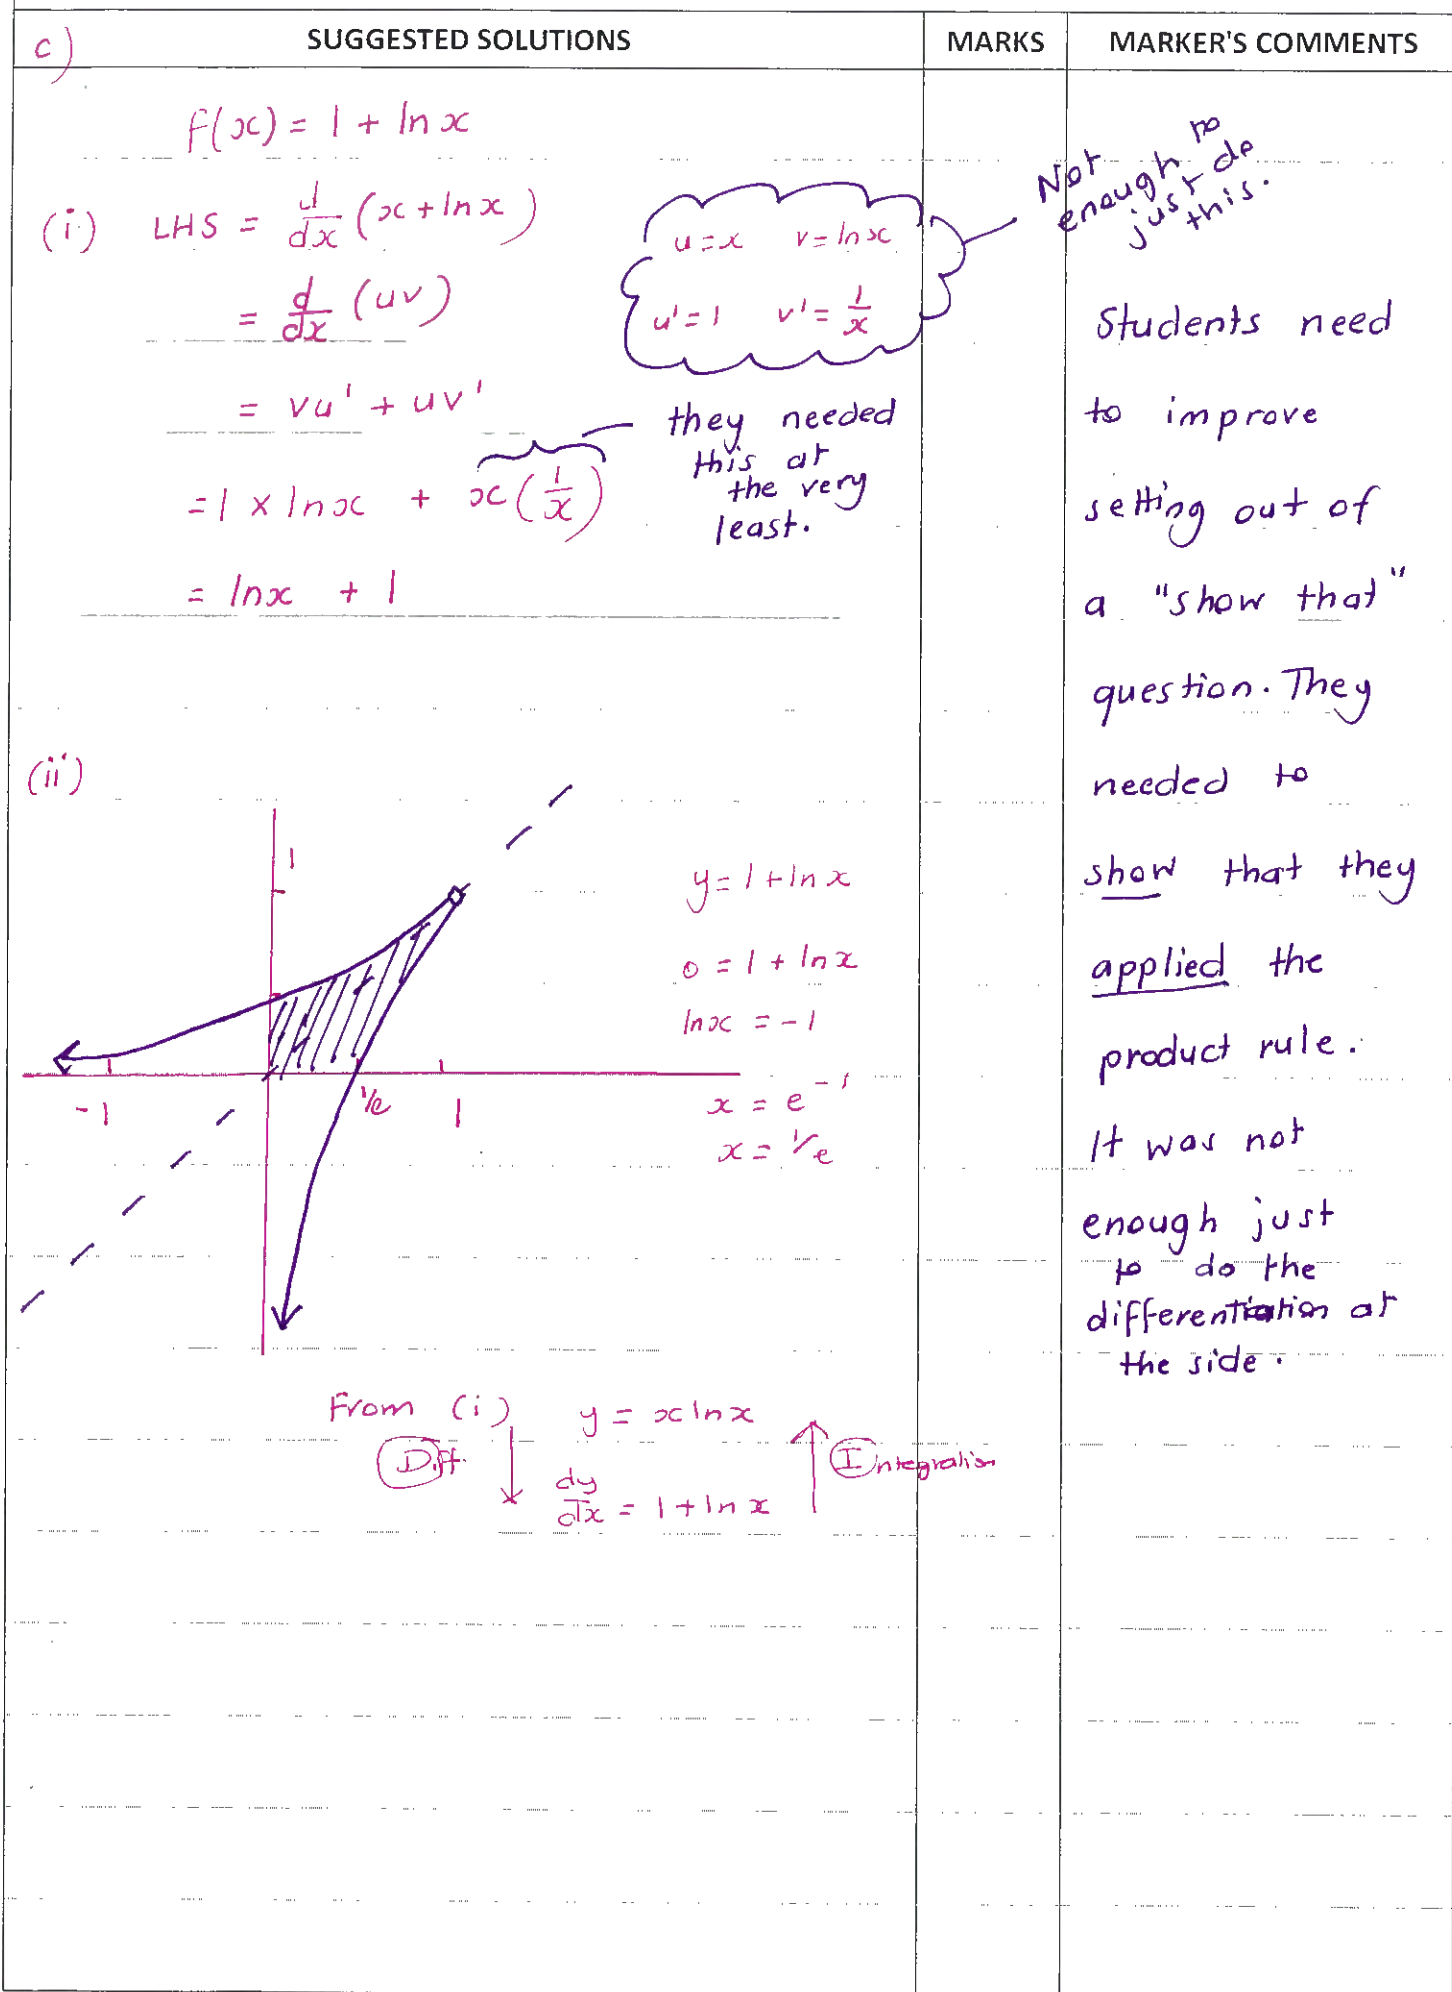 c)
SUGGESTED SOLUTIONS
MARKS
MARKER'S COMMENTS
f(x) = 1 + ln x
(i) LHS = d/dx (x + ln x)
= d/dx (uv)
= vu' + uv'
= 1 × ln x + x(1/x)
= ln x + 1
u = x v = ln x
u' = 1 v' = 1/x
they needed
this at
the very
least.
Not
enough to
just do
this.
Students need
to improve
setting out of
a "show that"
question. They
needed to
show that they
applied the
product rule.
It was not
enough just
to do the
differentiation at
the side.
(ii)
1
-1
1/e
1
y = 1 + ln x
0 = 1 + ln x
ln x = -1
x = e⁻¹
x = 1/e
From (i) y = x ln x
Diff.
Integration
dy/dx = 1 + ln x